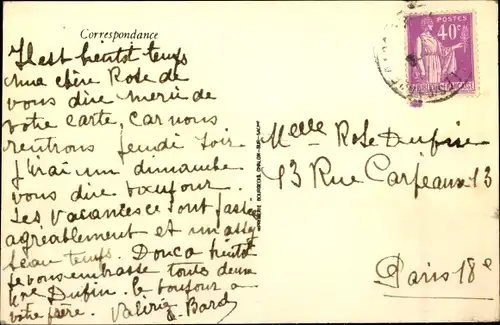 Correspondance
Il est bientôt temps
ma chère Rose de
vous dire merci de
votre carte, car nous
rentrons Jeudi soir
J'irai un dimanche
vous dire bonjour.
Les vacances se sont
agréablement et un
beau temps. Donc a bientôt
Je vous embrasse toutes deux
Mme Dufin. le bonjour a
votre père.
POSTES
40c
Melle Rose
13 Rue Carpeaux 13
Paris 18e
IMPRIMERIE BOURGEOIS, CHALON-SUR-SAONE